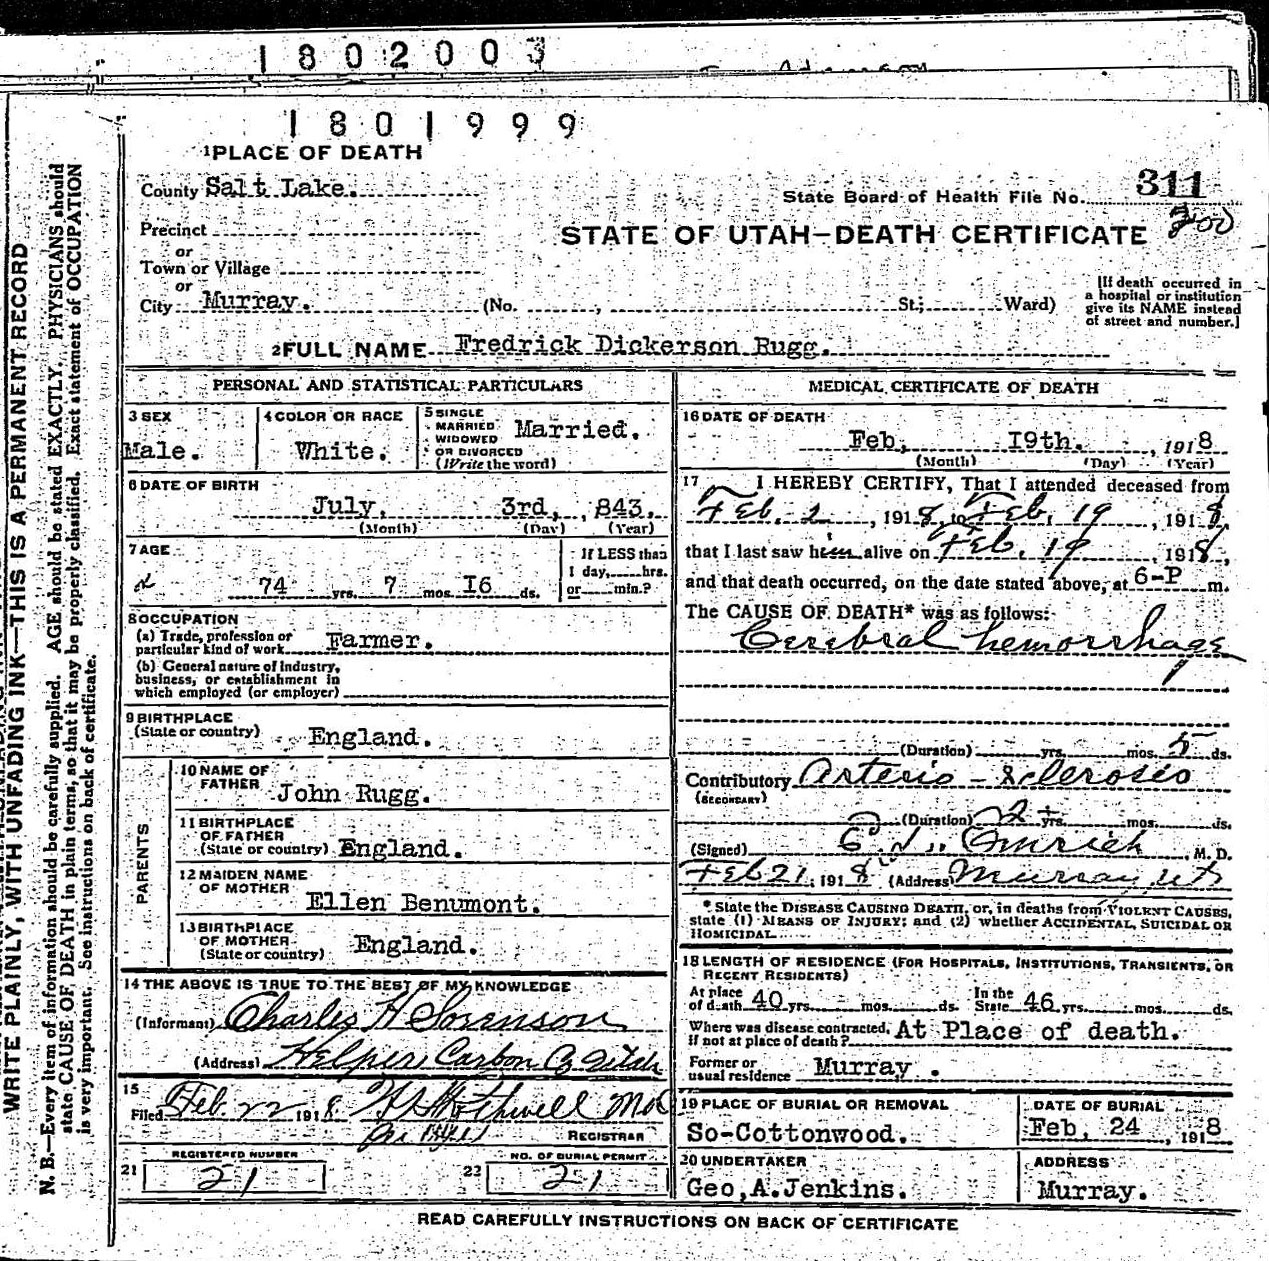 1802003
1801999
1PLACE OF DEATH
County Salt Lake.
State Board of Health File No. 311
200
Precinct
or
STATE OF UTAH—DEATH CERTIFICATE
Town or Village
or
City Murray. (No. , St.; Ward)
[If death occurred in
a hospital or institution
give its NAME instead
of street and number.]
2FULL NAME Fredrick Dickerson Rugg.
PERSONAL AND STATISTICAL PARTICULARS
3 SEX
Male.
4 COLOR OR RACE
White.
5 SINGLE
MARRIED
WIDOWED
OR DIVORCED
(Write the word)
Married.
6 DATE OF BIRTH
July. 3rd, , 843.
(Month) (Day) (Year)
7 AGE
74 yrs. 7 mos. I6 ds.
If LESS than
1 day, hrs.
or min.?
8 OCCUPATION
(a) Trade, profession or
particular kind of work Farmer.
(b) General nature of industry,
business, or establishment in
which employed (or employer)
9 BIRTHPLACE
(State or country) England.
PARENTS
10 NAME OF
FATHER John Rugg.
11 BIRTHPLACE
OF FATHER
(State or country) England.
12 MAIDEN NAME
OF MOTHER
Ellen Benumont.
13 BIRTHPLACE
OF MOTHER
(State or country) England.
14 THE ABOVE IS TRUE TO THE BEST OF MY KNOWLEDGE
(Informant) Charles H Sorenson
(Address) Helper, Carbon Co Utah
15
Filed Feb. 22 1918 Rothwell MD
REGISTRAR
21 REGISTERED NUMBER
21
22 NO. OF BURIAL PERMIT
21
MEDICAL CERTIFICATE OF DEATH
16 DATE OF DEATH
Feb, I9th. , 1918
(Month) (Day) (Year)
17 I HEREBY CERTIFY, That I attended deceased from
Feb. 2 , 1918, to Feb. 19 , 1918,
that I last saw him alive on Feb. 19 , 1918,
and that death occurred, on the date stated above, at 6-P m.
The CAUSE OF DEATH* was as follows:
Cerebral hemorrhage
(Duration) yrs. mos. 5 ds.
Contributory Arterio-sclerosis
(SECONDARY)
(Duration) 2+ yrs. mos. ds.
(Signed) , M. D.
Feb 21, 1918 (Address) Murray, Ut
* State the DISEASE CAUSING DEATH, or, in deaths from VIOLENT CAUSES,
state (1) MEANS OF INJURY; and (2) whether ACCIDENTAL, SUICIDAL OR
HOMICIDAL.
18 LENGTH OF RESIDENCE (FOR HOSPITALS, INSTITUTIONS, TRANSIENTS, OR
RECENT RESIDENTS)
At place
of death 40 yrs. mos. ds. In the
State 46 yrs. mos. ds.
Where was disease contracted, At Place of death.
If not at place of death?
Former or
usual residence Murray .
19 PLACE OF BURIAL OR REMOVAL
So-Cottonwood.
DATE OF BURIAL
Feb, 24 , 1918
20 UNDERTAKER
Geo,A.Jenkins.
ADDRESS
Murray.
READ CAREFULLY INSTRUCTIONS ON BACK OF CERTIFICATE
WRITE PLAINLY, WITH UNFADING INK—THIS IS A PERMANENT RECORD
N. B.—Every item of information should be carefully supplied. AGE should be stated EXACTLY. PHYSICIANS should
state CAUSE OF DEATH in plain terms, so that it may be properly classified. Exact statement of OCCUPATION
is very important. See instructions on back of certificate.